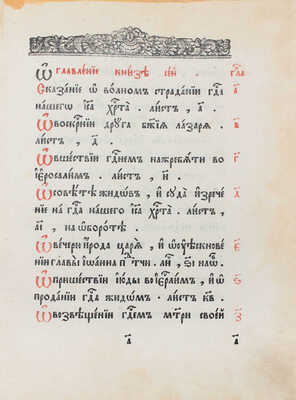 Ѡглавленїе книзѣ сей . гла҃
Сказанїе ѡ волном страданїи гд҃а а҃
нашегѡ і҃са хр҃та . листъ , а҃ .
Ѡ воскр҃нїи друга бж҃їѧ лазарѧ . в҃
листъ , д҃ .
Ѡ вшествїи гд҃нем на жребѧти во г҃
їерⷭ҇олим . листъ , и҃ .
Ѡ совѣтѣ жидѡв , и суда изрече д҃
нїи на гд҃а нашего і҃са хр҃та . листъ ,
аі҃ , на ѡборотѣ .
Ѡ вечери ірода царѧ , и ѡ оусѣкнове є҃
нїи главы іѡанна пр҃тчи . ли҃ , ѕі҃ наѡ҃ .
Ѡ пришествїи іюды во іерⷭ҇лим . и ѡ ѕ҃
проданїи гд҃а жидѡм . листъ кв҃ .
Ѡ возвѣщенїи гд҃нем мт҃ри своей з҃
а҃ а҃